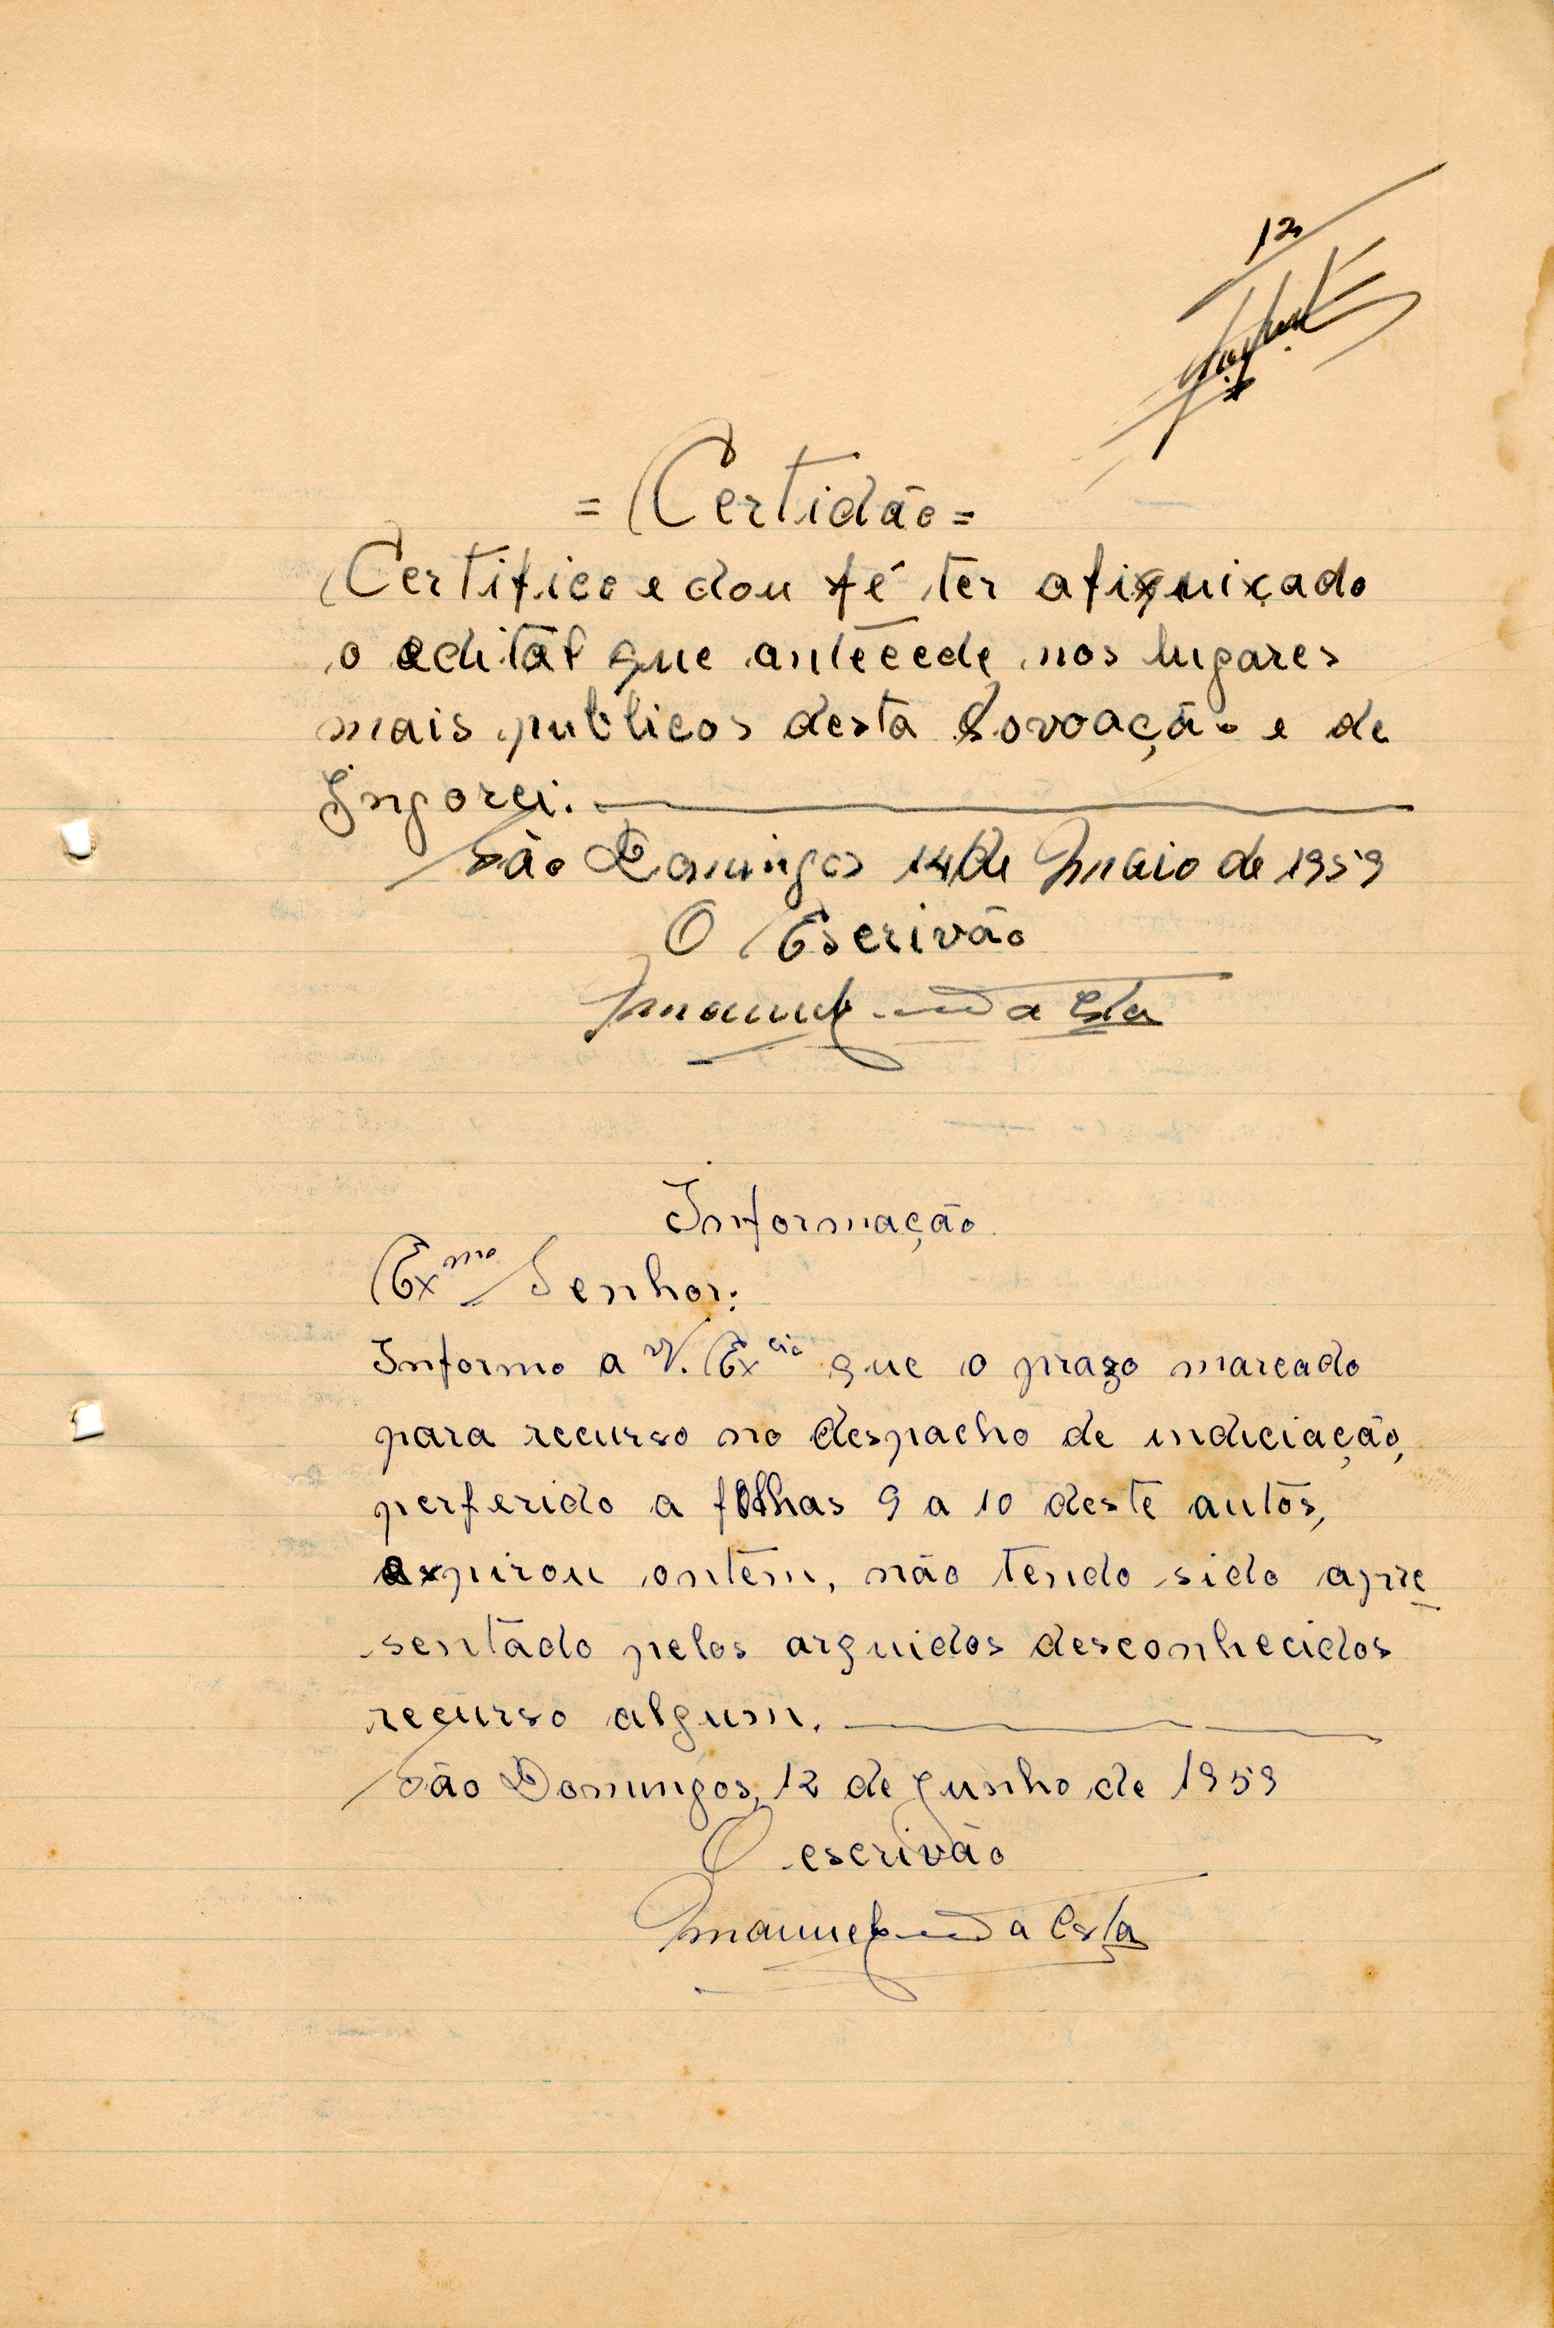 12
= Certidão =
Certifico e dou fé ter
o edital que antecede nos lugares
mais publicos desta Povoação e de
Ingorei.
São Domingos 14 de Maio de 1959
O Escrivão
Manuel da Costa
Informação
Exmo Senhor:
Informo a V. Excia que o prazo marcado
para recurso no despacho de indiciação,
perferido a folhas 9 a 10 deste autos,
expirou ontem, não tendo sido apre
sentado pelos arguidos desconhecidos
recurso algum.
São Domingos, 12 de Junho de 1959
O escrivão
Manuel da Costa